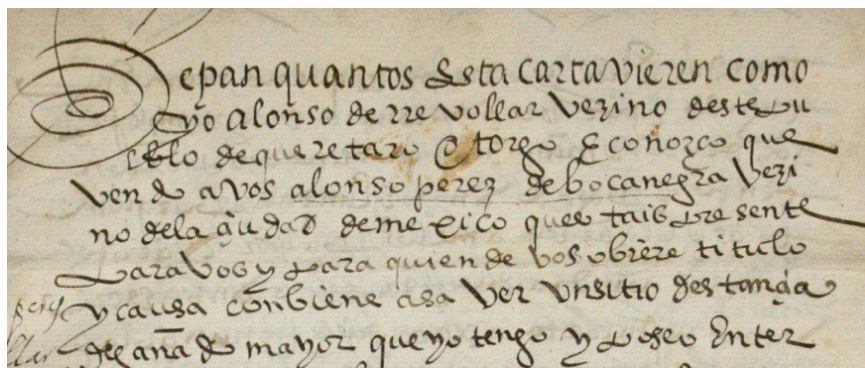 Sepan quantos Esta carta vieren como
yo Alonso de rrevollar vezino deste pu
eblo de queretaro otorgo E conozco que
vendo a vos alonso perez de bocanegra vezi
no dela çiudad de mexico que es tais presente
para vos y para quien de vos obiere titulo
y causa conbiene a saver un sitio destançia
de ganado mayor que yo tengo y poseo Enter